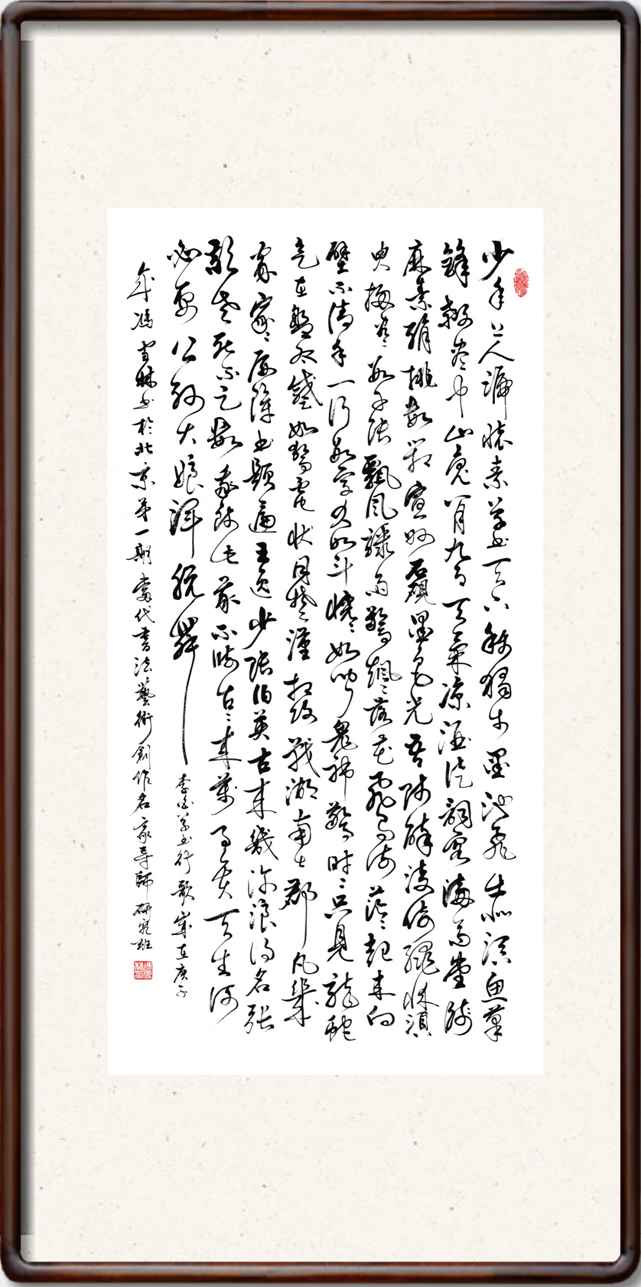 少年上人號懷素草書天下稱獨步墨池飛出北溟魚筆
鋒殺盡中山兔八月九月天氣凉酒徒詞客滿高堂牋
麻素絹排數廂宣州石硯墨色光吾師醉後倚繩床須
臾掃盡數千張飄風驟雨驚颯颯落花飛雪何茫茫起來向
壁不停手一行數字大如斗恍恍如聞鬼神驚時時只見龍蛇
走左盤右蹙如驚電狀同楚漢相攻戰湖南七郡凡幾
家家家屏障書題遍王逸少張伯英古來幾許浪得名張
顛老死不足數我師此義不師古古來萬事貴天生何
必要公孫大娘渾脱舞
李白草書行歌歲在庚子
年馮雪林書於北京第一期當代書法藝術創作名家導師研究班